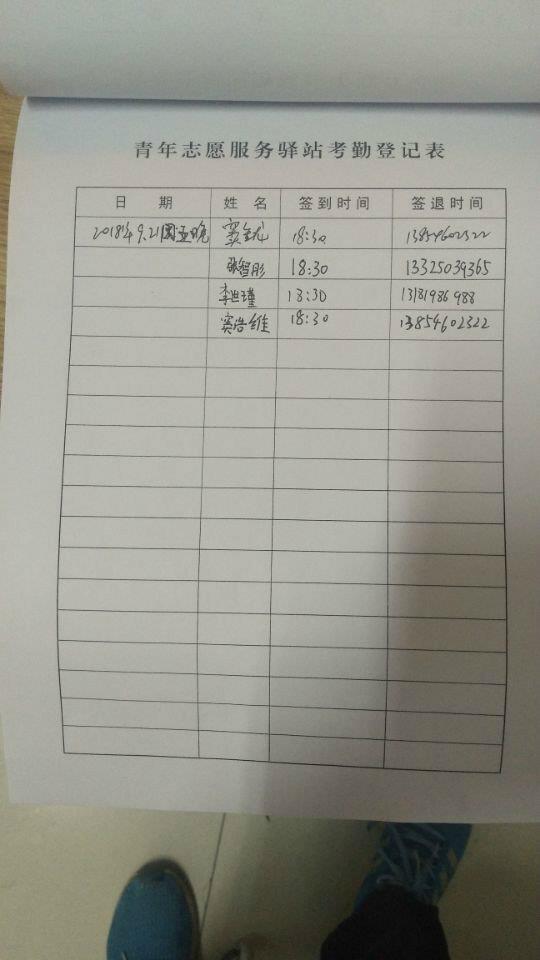 青年志愿服务驿站考勤登记表
日 期 姓 名 签到时间 签退时间
2018年9.21周五晚 窦金龙 18:30 13854602322
张智彤 18:30 13325039365
李世瑾 18:30 13181986988
窦浩维 18:30 13854602322